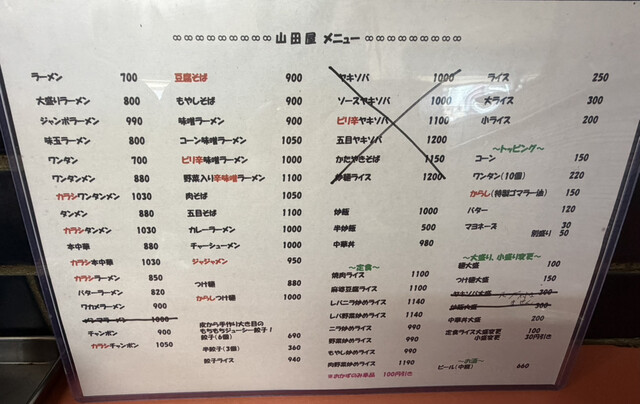 ∞∞∞∞∞∞∞∞∞ 山田屋 メニュー ∞∞∞∞∞∞∞∞∞
ラーメン 700
大盛りラーメン 800
ジャンボラーメン 990
味玉ラーメン 800
ワンタン 700
ワンタンメン 880
カラシワンタンメン 1030
タンメン 880
カラシタンメン 1030
本中華 880
カラシ本中華 1030
カラシラーメン 850
バターラーメン 820
ワカメラーメン 900
1000
チャンポン 900
カラシチャンポン 1050
豆腐そば 900
もやしそば 900
味噌ラーメン 900
コーン味噌ラーメン 1050
ピリ辛味噌ラーメン 1000
野菜入り辛味噌ラーメン 1100
肉そば 1050
五目そば 1100
カレーラーメン 1000
チャーシューメン 1000
ジャジャメン 950
つけ麺 880
からしつけ麺 1000
皮から手作り大き目の
もちもちジューシー餃子!
餃子(6個) 690
半餃子(3個) 360
餃子ライス 940
ヤキソバ 1000
ソースヤキソバ 1000
ピリ辛ヤキソバ 1100
五目ヤキソバ 1200
かたやきそば 1150
炒麺ライス 1200
炒飯 1000
半炒飯 500
中華丼 980
～定食～
焼肉ライス 1100
麻婆豆腐ライス 1100
レバニラ炒めライス 1140
レバ野菜炒めライス 1140
ニラ炒めライス 990
野菜炒めライス 990
もやし炒めライス 990
肉野菜炒めライス 1190
※おかずのみ単品 100円引き
ライス 250
大ライス 300
小ライス 200
～トッピング～
コーン 150
ワンタン(10個) 220
からし(特製ゴマラー油) 150
バター 120
マヨネーズ 30
別盛り 50
～大盛り、小盛り変更～
麺大盛 100
つけ麺大盛 150
ヤキソバ大盛 300
炒飯大盛 300
中華丼大盛 200
定食ライス大盛変更 100
小盛変更 30円引き
～お酒～
ビール(中瓶) 660